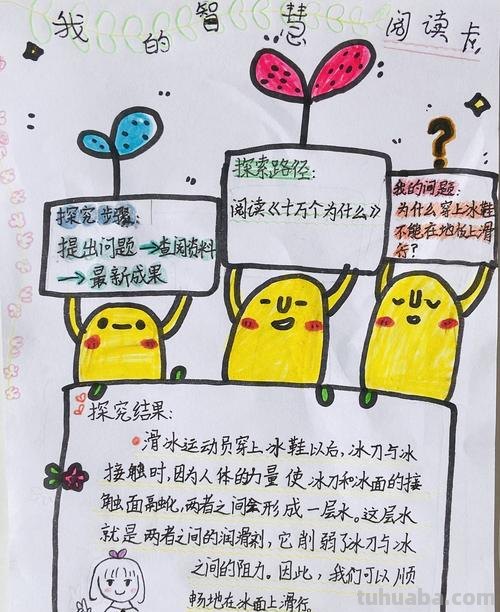 我的智慧阅读卡
探究步骤:
提出问题→查阅资料
→最新成果
探索路径:
阅读《十万个为什么》
我的问题:
为什么穿上冰鞋
不能在地板上滑
行?
探究结果:
滑冰运动员穿上冰鞋以后,冰刀与冰
接触时,因为人体的力量使冰刀和冰面的接
触面融化,两者之间会形成一层水。这层水
就是两者之间的润滑剂,它削弱了冰刀与冰
之间的阻力。因此,我们可以顺
畅地在冰面上滑行
tuhuaba.com